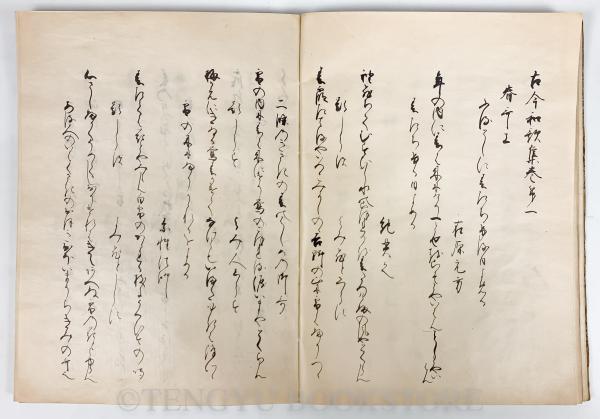 古今和歌集巻第一
春哥上
ふるとしに春たちける日よめる
在原元方
年の内に春はきにけり一とせをこそとやいはんことしとやいはん
春たちける日よめる
紀貫之
袖ひちてむすひし水のこほれるを春たつけふの風やとくらん
題しらす　よみ人しらす
春霞たてるやいつこみよしのの吉野の山に雪はふりつつ
二條のきさきの春のはしめの御哥
雪の内に春はきにけり鶯のこほれる涙いまやとくらん
題しらす　よみ人しらす
梅かえにきゐる鶯春かけてなけともいまた雪はふりつつ
雪の木にふりかかれるをよめる
素性法師
春たては花とや見らん白雪のかかれる枝にうくひすのなく
題しらす　よみ人しらす
心さしふかくそめてしをりけれはきえあへぬ雪の花と見ゆらん
あるひとのいはくさきのおほきおほいまうちきみの哥
©TENGYU BOOKSTORE